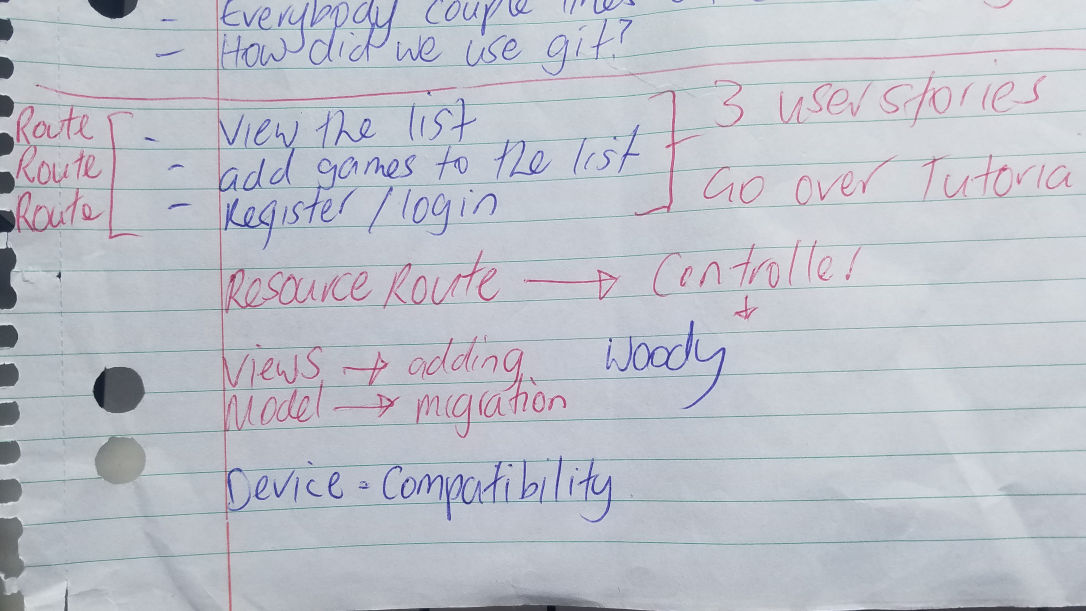 - Everybody couple
- How did we use git?
Route - View the list ] 3 user stories
Route - add games to the list
Route - Register / login Go over Tutoria
Resource Route → Controller
Views → adding Woody
Model → migration
Device - Compatibility